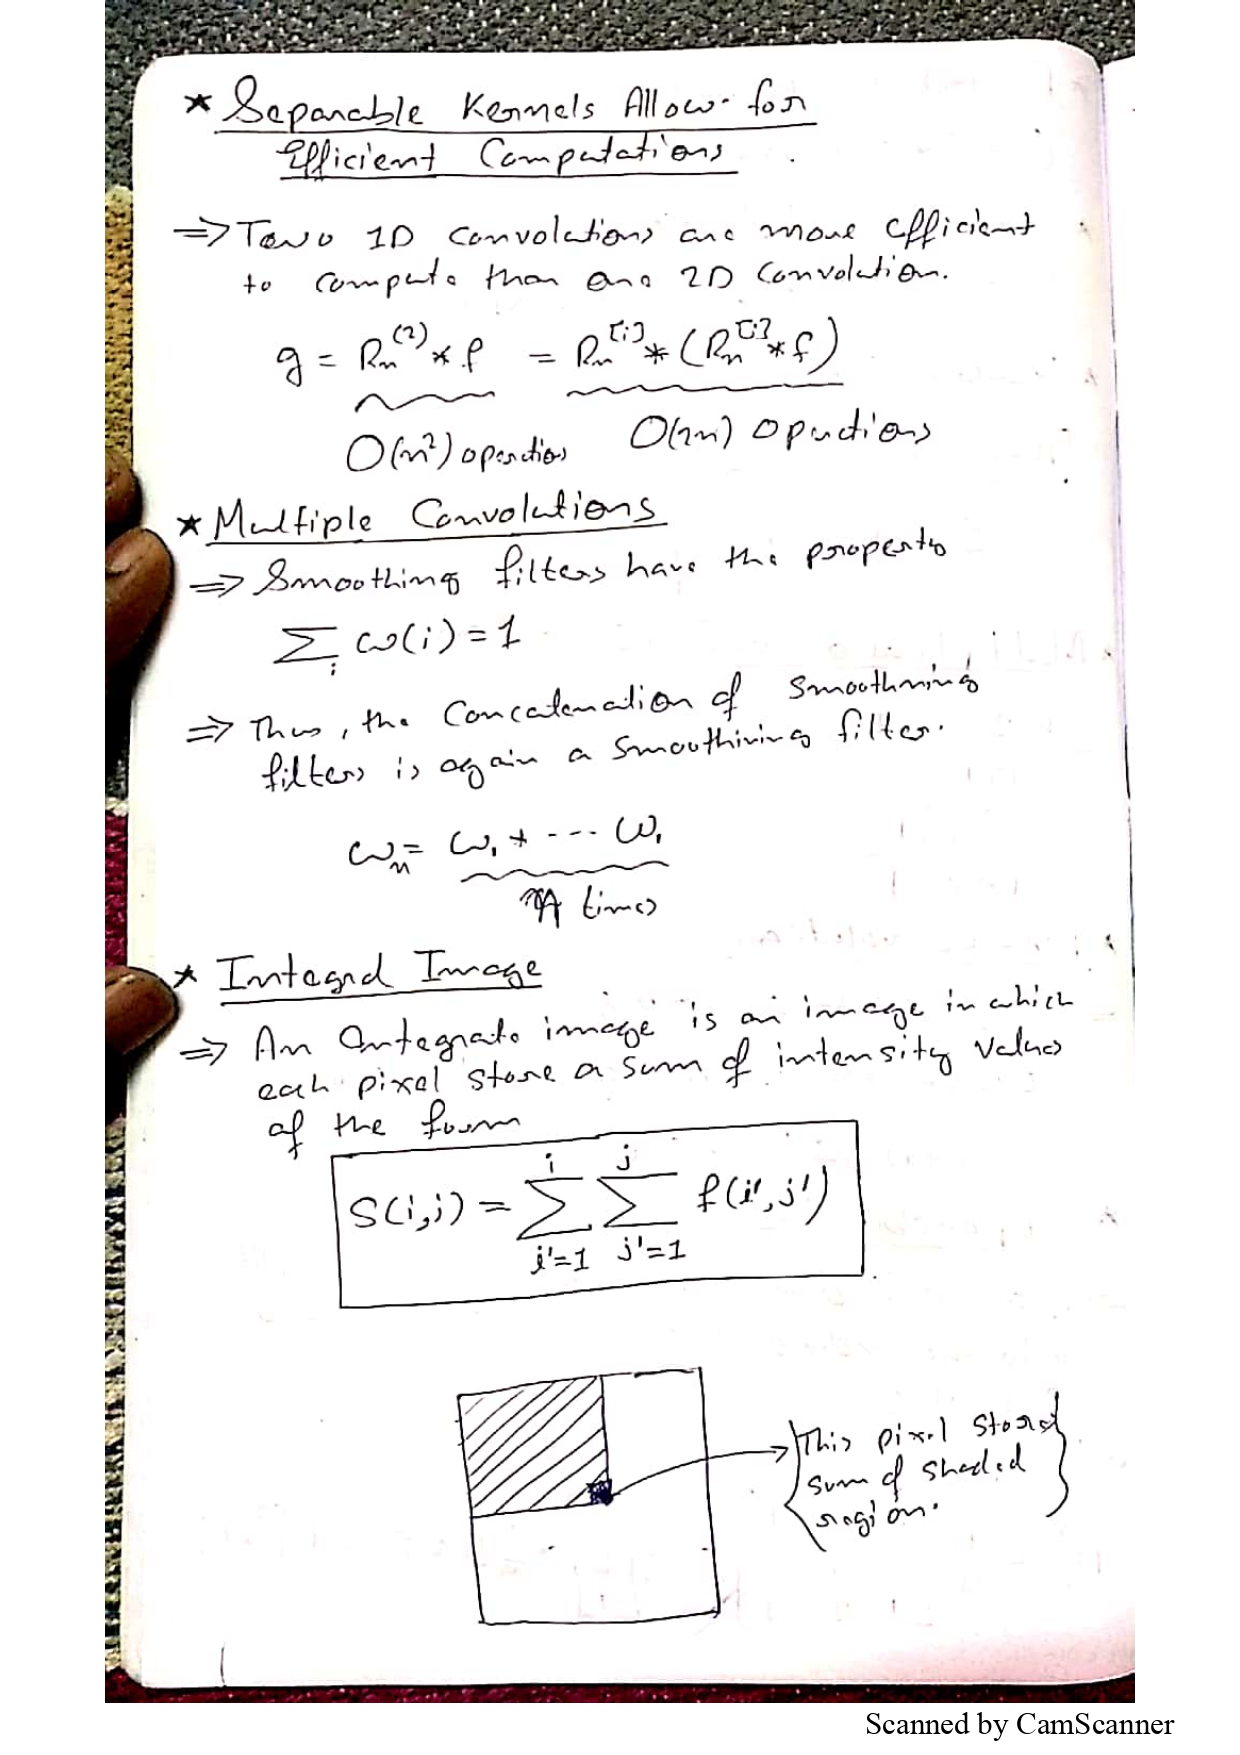 ★ Separable Kernels Allow for
Efficient Computations
⇒ Two 1D convolutions are more efficient
to compute than one 2D convolution.
g = Rₘ⁽²⁾ * f = Rₘ[i] * (Rₘ[j] * f)
O(m²) operations O(2m) operations
★ Multiple Convolutions
⇒ Smoothing filters have the property
∑ᵢ ω(i) = 1
⇒ Thus, the Concatenation of smoothning
filters is again a smoothining filter.
ωₙ = ω₁ * --- ω₁
n times
★ Integral Image
⇒ An integrate image is an image in which
each pixel store a sum of intensity values
of the form
S(i,j) = ∑ᵢ'₌₁ⁱ ∑ⱼ'₌₁ʲ f(i',j')
This pixel stored
sum of shaded
region.
Scanned by CamScanner